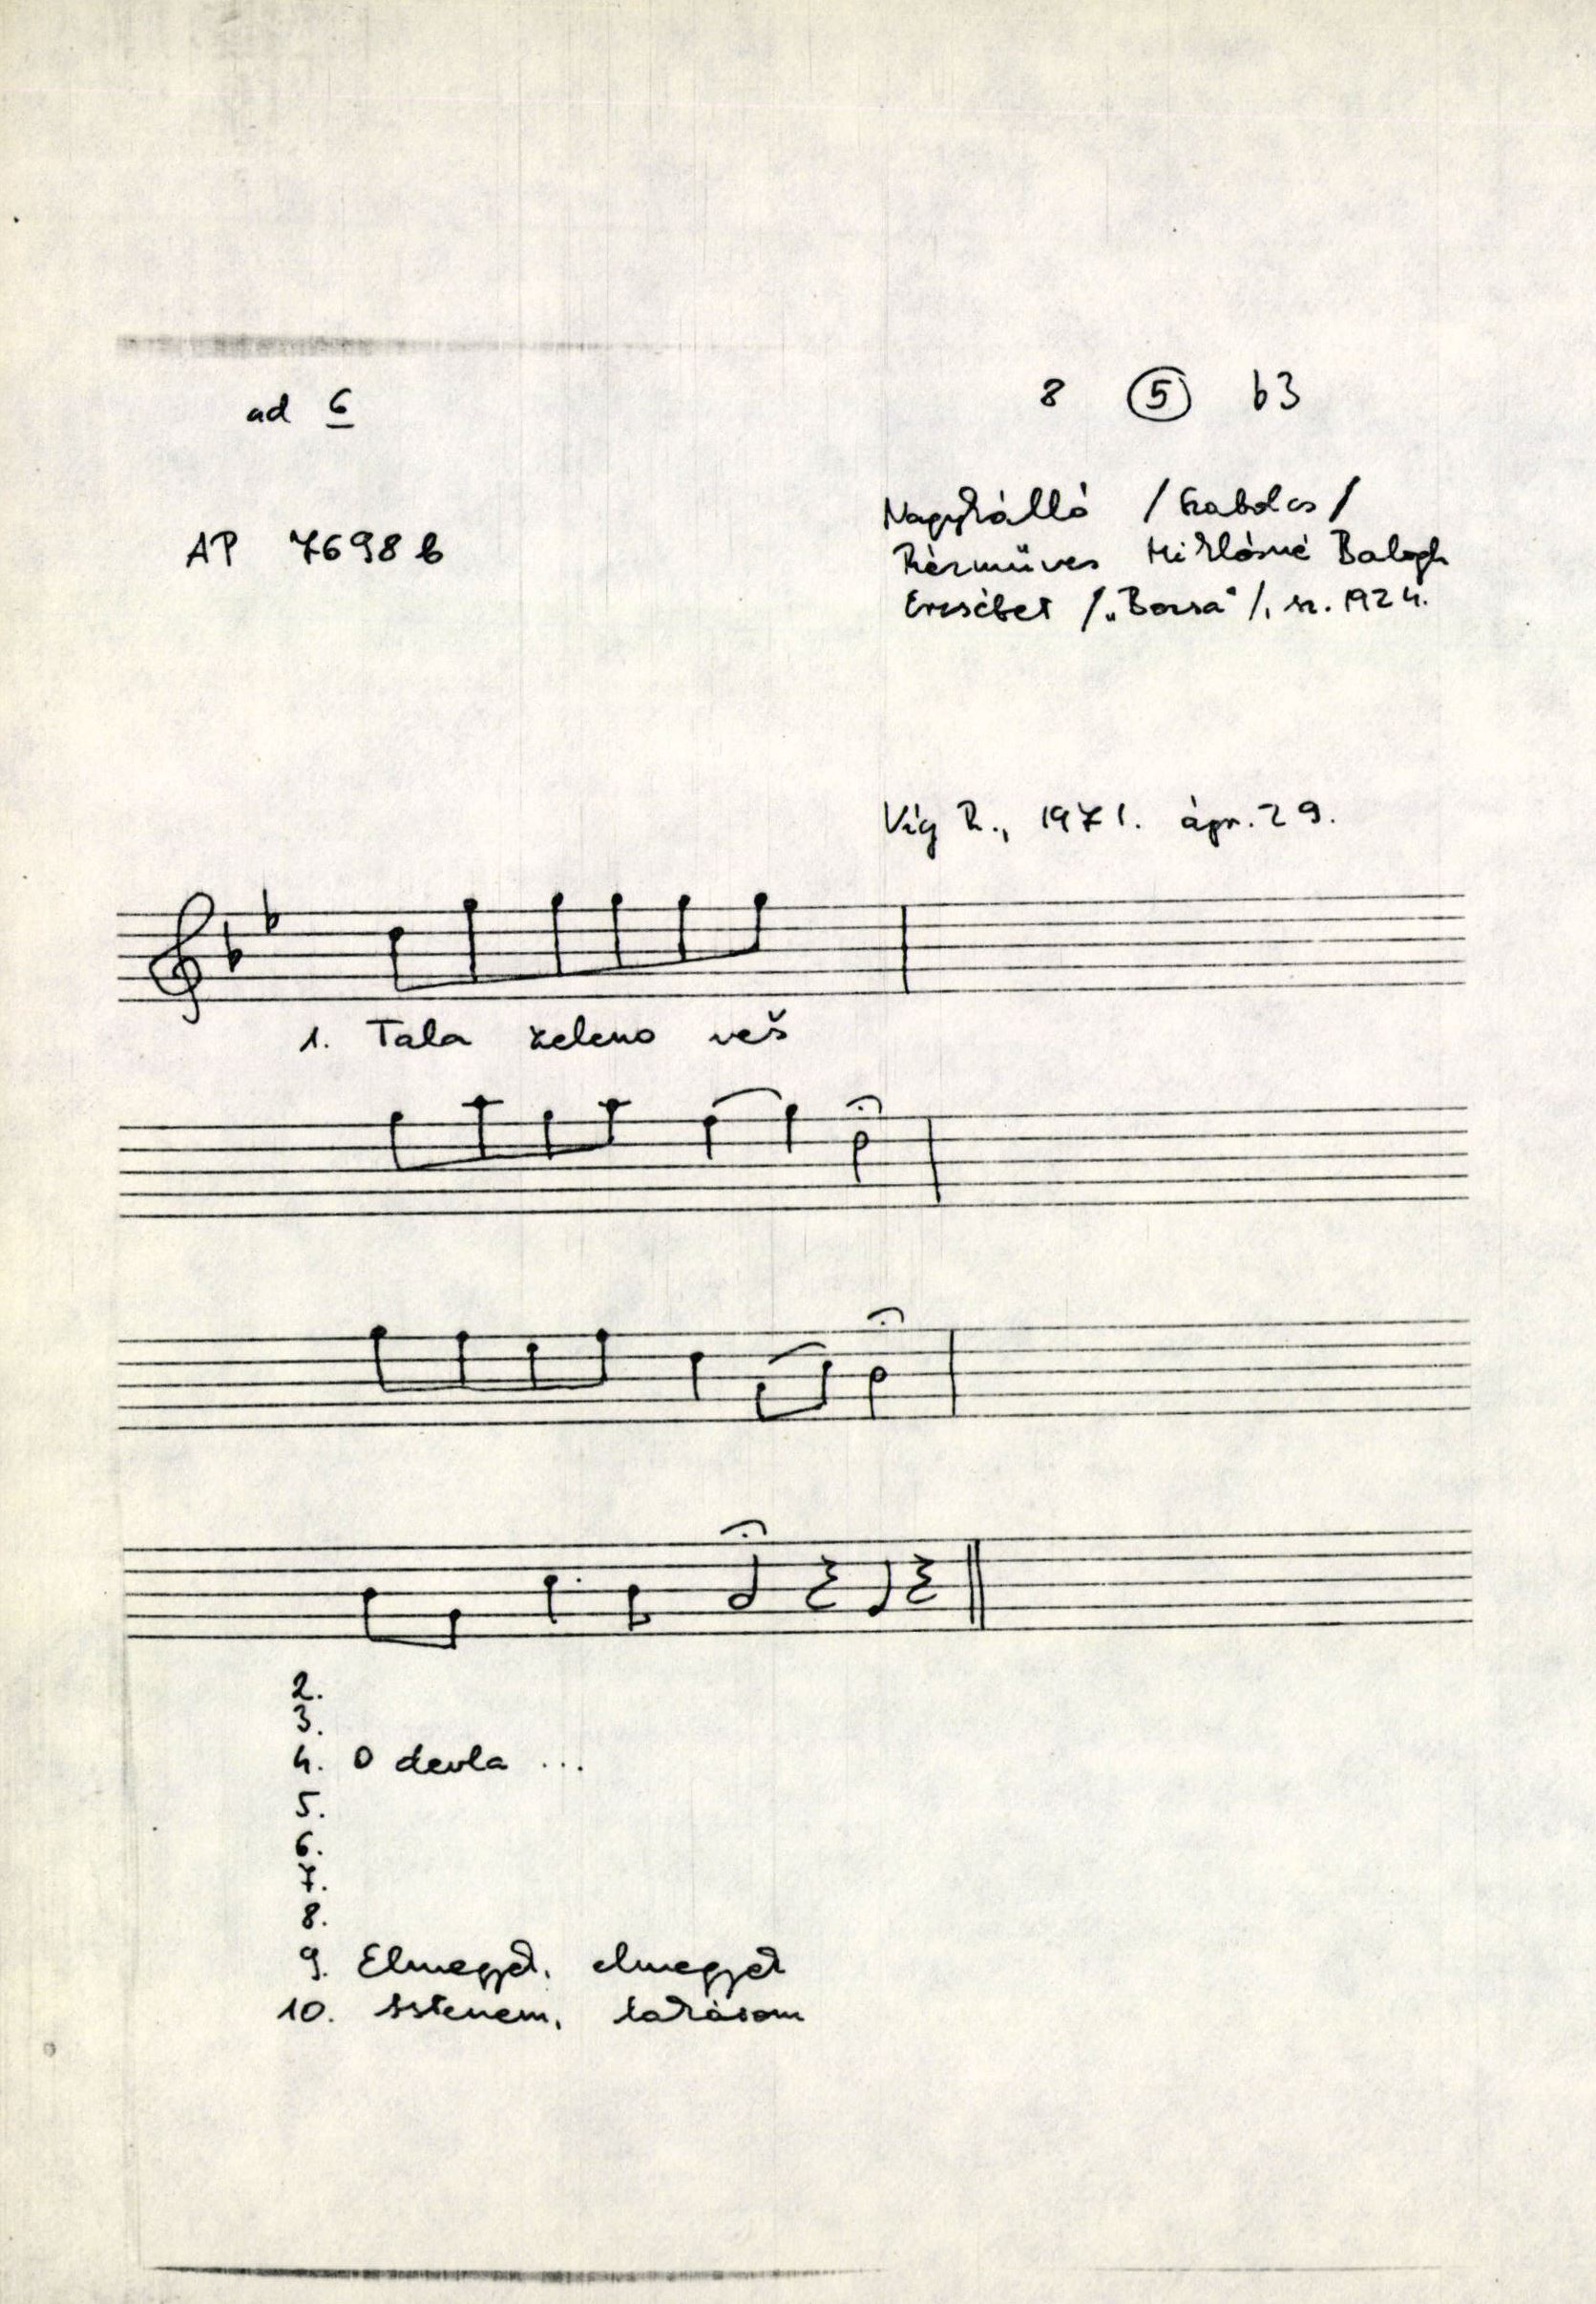 ad 6
8 5 b3
AP 7698 b
Nagykálló /Szabolcs/
Rézmüves Miklósné Balogh
Erzsébet /„Borsa"/, sz. 1924.
Víg R., 1971. ápr. 29.
1. Tala zeleno veš
2.
3.
4. O devla ...
5.
6.
7.
8.
9. Elmegyek, elmegyek
10. Istenem, lakásom